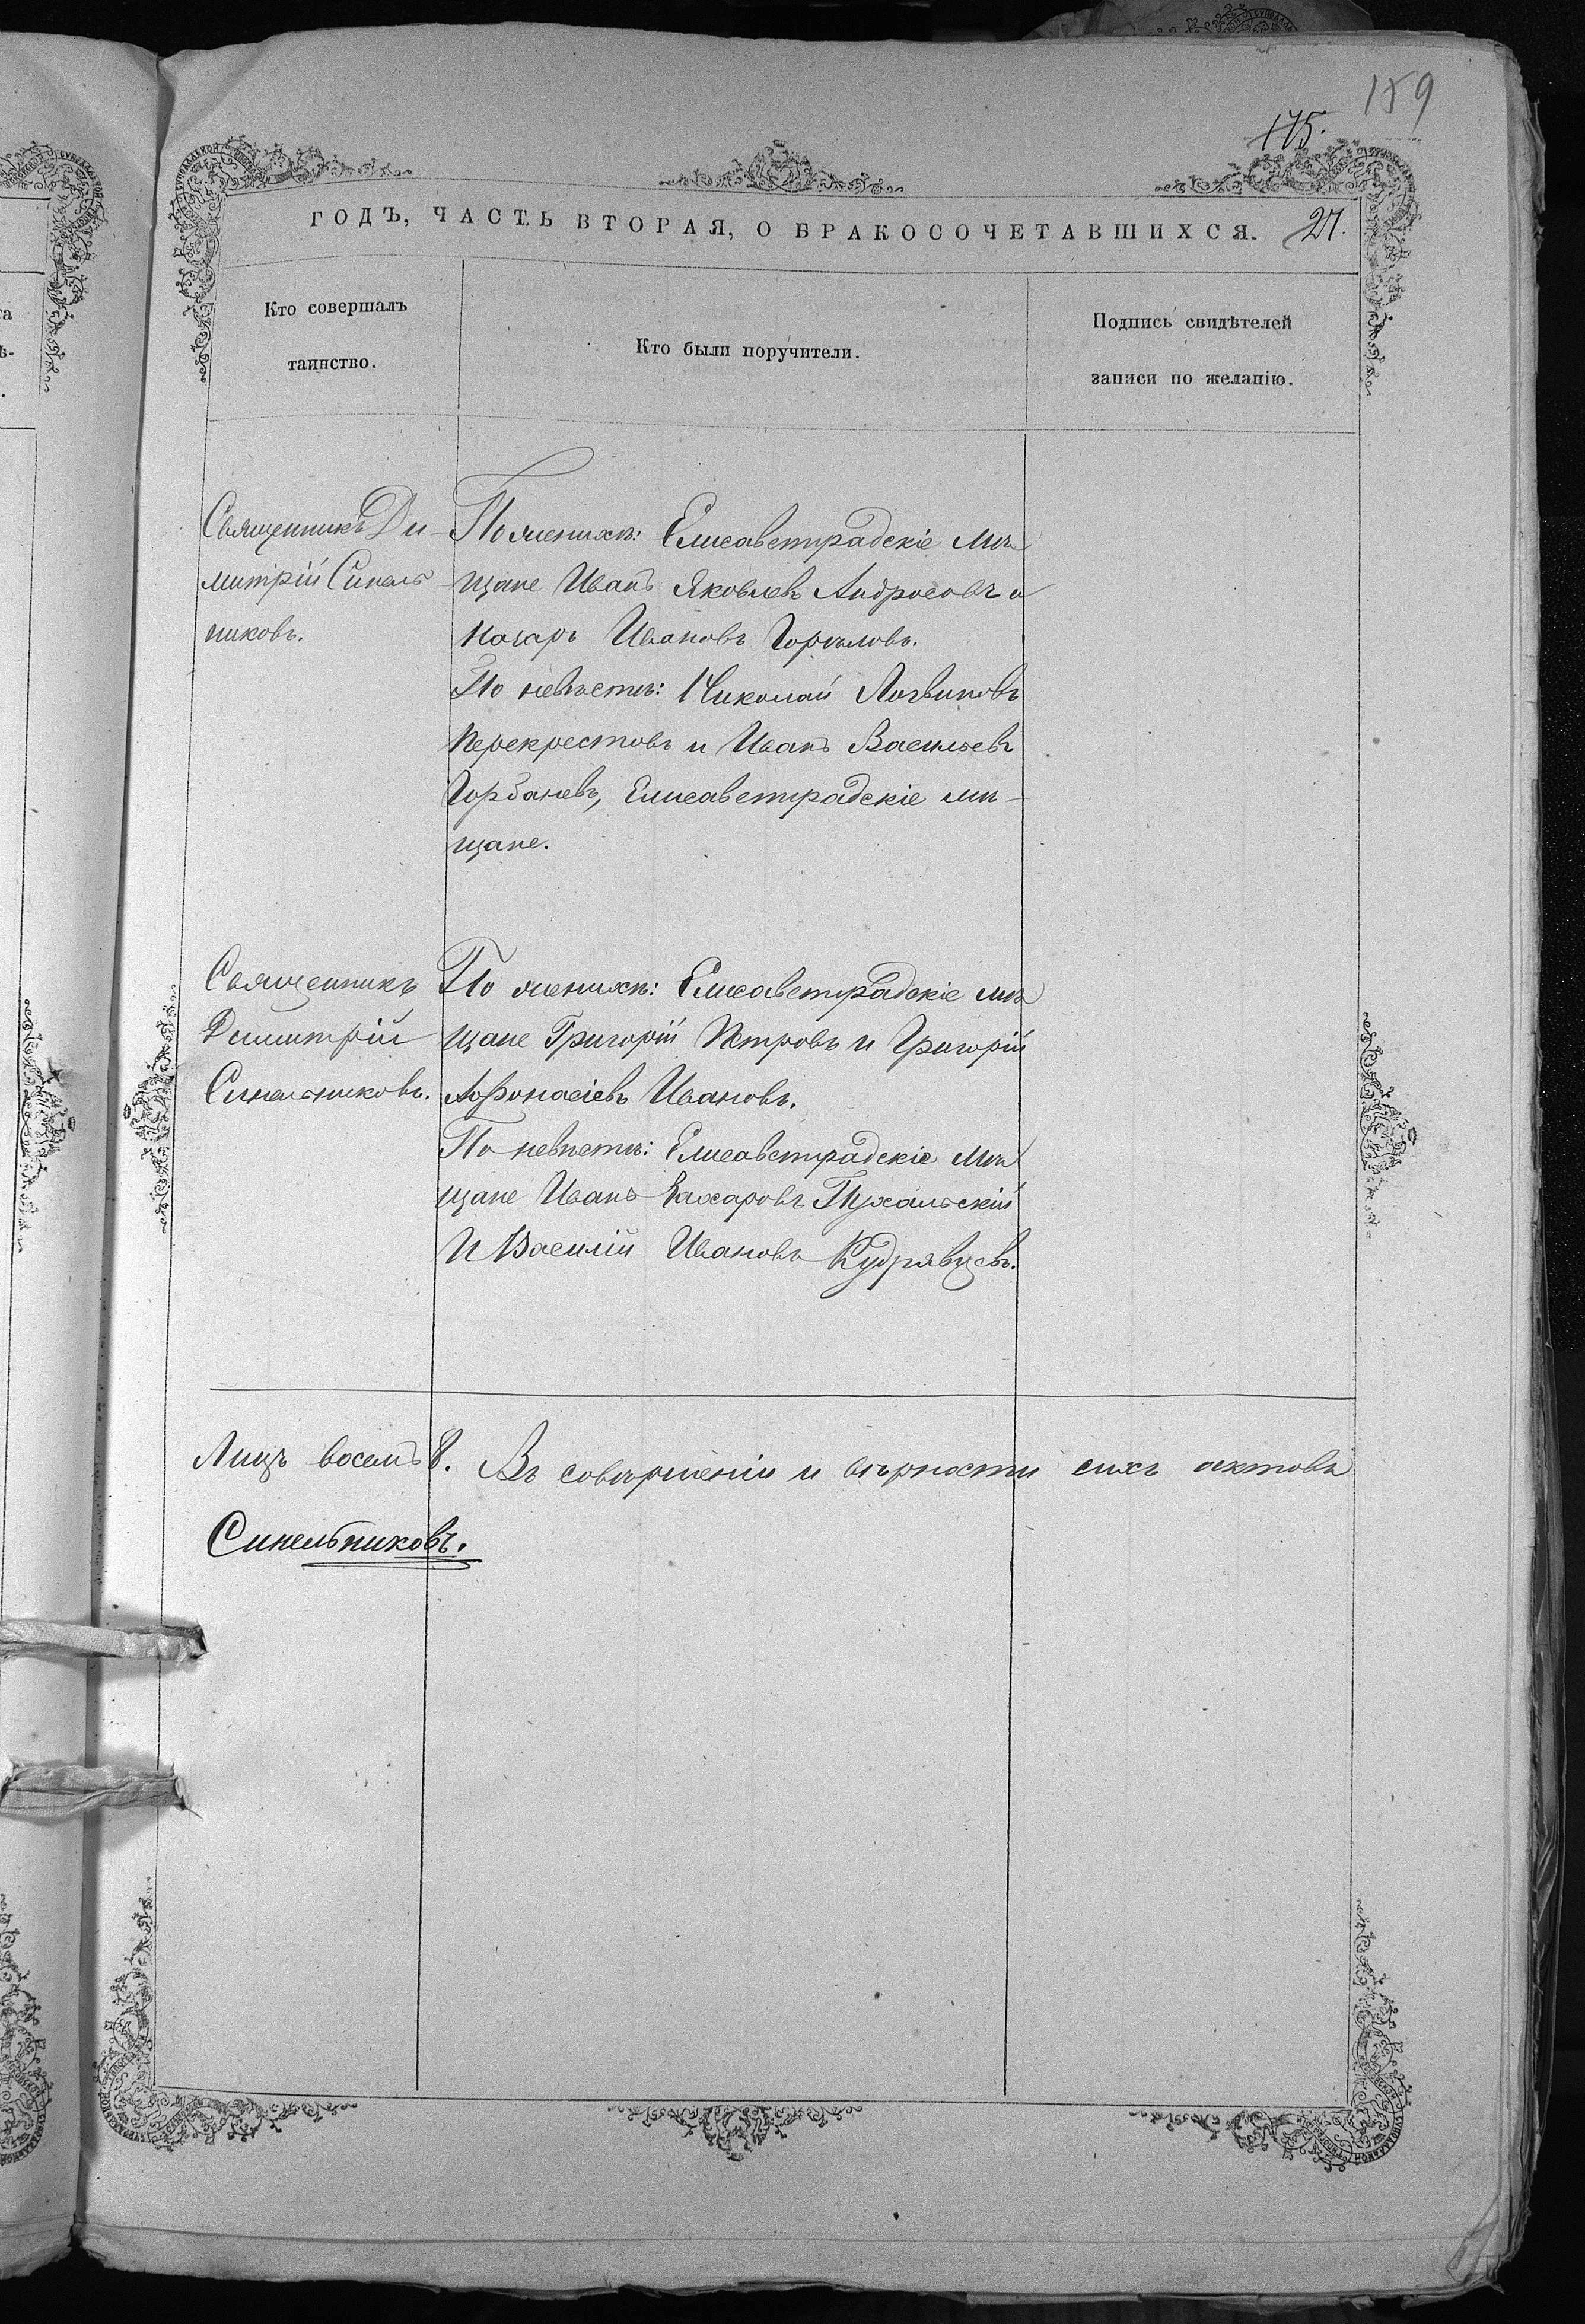 159
175.
ГОДЪ, ЧАСТЬ ВТОРАЯ, О БРАКОСОЧЕТАВШИХСЯ. 27.
Кто совершалъ
таинство.
Кто были поручители.
Подпись свидѣтелей
записи по желанію.
Священникъ Ди
митрій Синель
никовъ.
По женихѣ: Елисаветградскіе мѣ
щане Иванъ Яковлевъ Андросовъ и
Назаръ Ивановъ
По невѣстѣ: Николай Логвиновъ
Перекрестовъ и Иванъ Васильевъ
Горбаневъ, Елисаветградскіе мѣ-
щане.
Священникъ
Димитрій
Синельниковъ.
По женихѣ: Елисаветградскіе мѣ
щане Григорій Петровъ и Григорій
Афонасіевъ Ивановъ.
По невѣстѣ: Елисаветградскіе мѣ
щане Иванъ Захаровъ Пухальскій
и Василій Ивановъ Кудрявцевъ.
Лицъ восемь 8. Въ совершеніи и вѣрности сихъ актовъ
Синельниковъ.